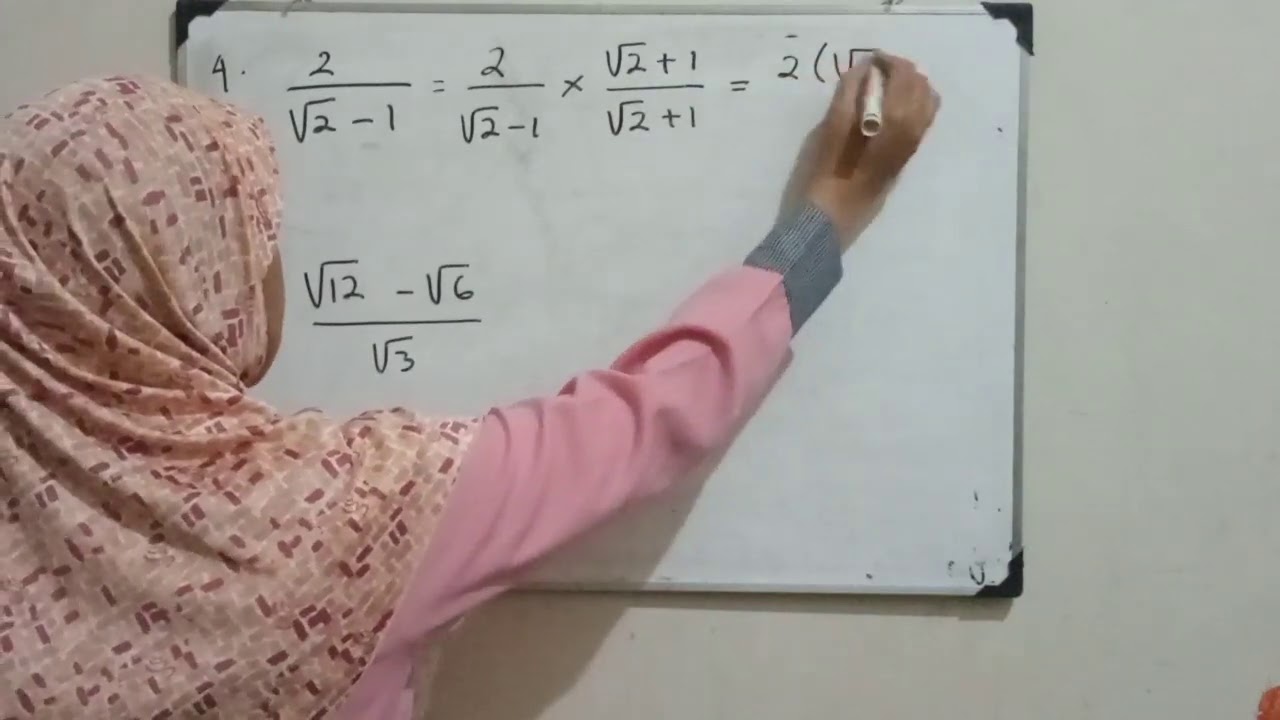 4. 2/(√2 - 1) = 2/(√2 - 1) × (√2 + 1)/(√2 + 1) = 2(√
(√12 - √6)/√3